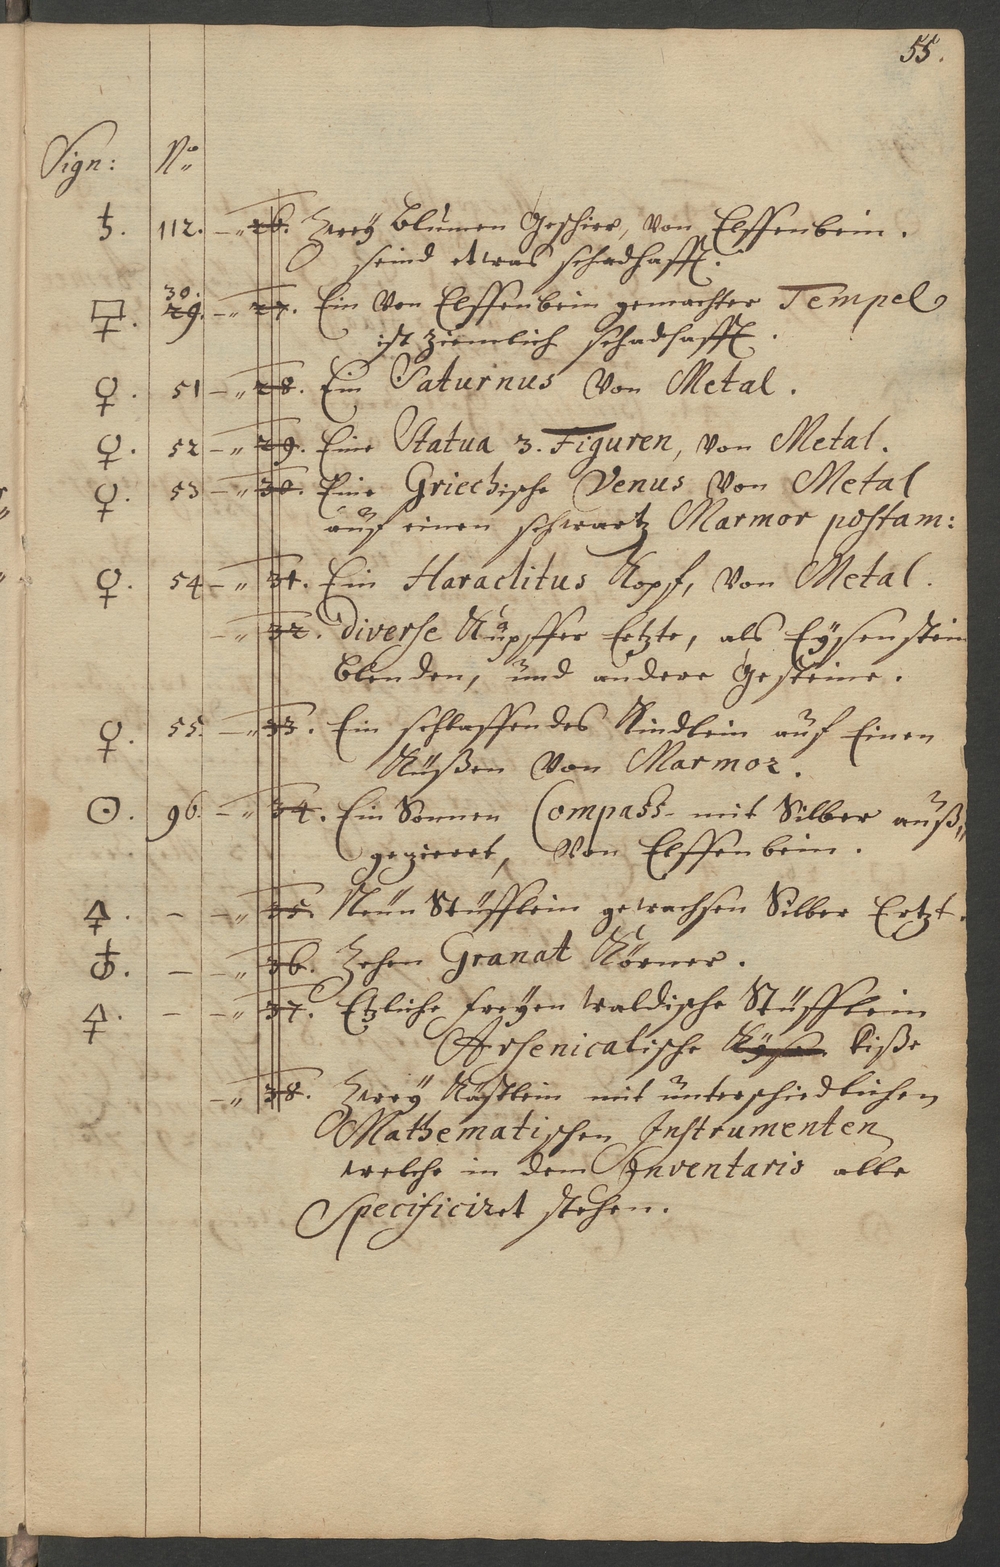 55.
Sign: No
♄. 112. – „ 26. Zweÿ Blumen Geschirr, von Elffenbein.
seind etwas schadhafft.
30.
29. – „ 27. Ein von Elffenbein gemachter Tempel
ist ziemlich schadhafft.
♀. 51 – „ 28. Ein Saturnus von Metal.
♀. 52 – „ 29. Eine Statua 3. Figuren, von Metal.
♀. 53 – „ 30. Eine Griechische Venus von Metal
auf einen schwartz Marmor postam:
♀. 54 – „ 31. Ein Haraclitus Kopf, von Metal.
– „ 32. Diverse Kupffer Ertzte, als Eÿsenstein
blenden, und andere Gesteine.
♀. 55. – „ 33. Ein schlaffendes Kindlein auf Einen
Küßen von Marmor.
☉. 96. – „ 34. Ein Sonnen Compass mit Silber auß„
gezieret, von Elffenbein.
🜍. – – „ 35. Neün Stüfflein gewachsen Silber Ertzt.
♁. – – „ 36. Zehen Granat Körner.
🜍. – – „ 37. Etzliche freÿen waldische Stüfflein
Arsenicalische Kiße
– „ 38. Zweÿ Kästlein mit unterschiedlichen
Mathematischen Instrumenten
welche in dem Inventario alle
Specificiret stehen.